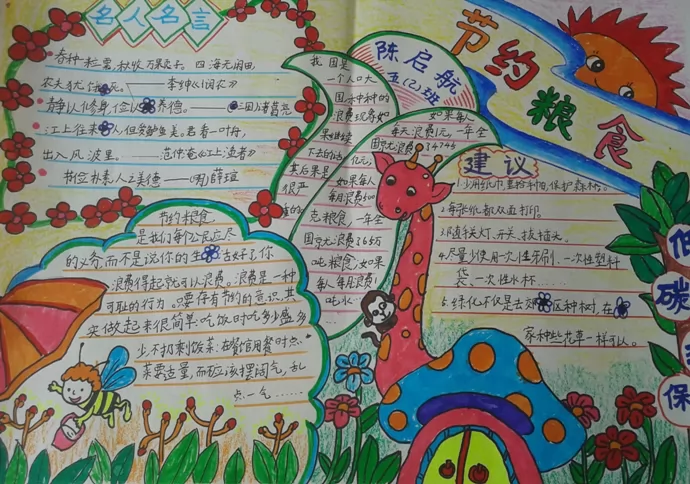 名人名言
春种一粒粟,秋收万果子。四海无闲田,
农夫犹饿死。——李绅《悯农》
静以修身,俭以养德。——三国诸葛亮
江上往来人,但爱鲈鱼美。君看一叶舟,
出入风波里。——范仲淹《江上渔者》
节俭朴素,人之美德——(明)薛瑄
节约粮食
是我们每个公民应尽
的义务,而不是说你的生活好了,你
浪费得起就可以浪费。浪费是一种
可耻的行为。只要存有节约的意识,其
实做起来很简单:吃饭时吃多少盛多
少,不扔剩饭菜;在餐馆用餐时点
菜要适量,而不应该摆阔气,乱
点一气……
我国是
一个人口大
国,
浪费现象如
果继续
下去的话,
其后果是
很严
重的
陈启航
五(2)班
如果每人
每天浪费1元,一年全
国就浪费
亿元;
如果每人
每月浪费500
克粮食,一年全
国就浪费7650万
吨粮食;如果
每人每月浪费1
吨水……
节约粮食
建议
1.少用纸巾,重拾手帕,保护森林。
2.每张纸都双面打印。
3.随手关灯、开关、拔插头。
4.尽量少使用一次性牙刷、一次性塑料
袋、一次性水杯……
5.绿化不仅是去郊区种树,在
家种些花草一样可以。
低碳环保